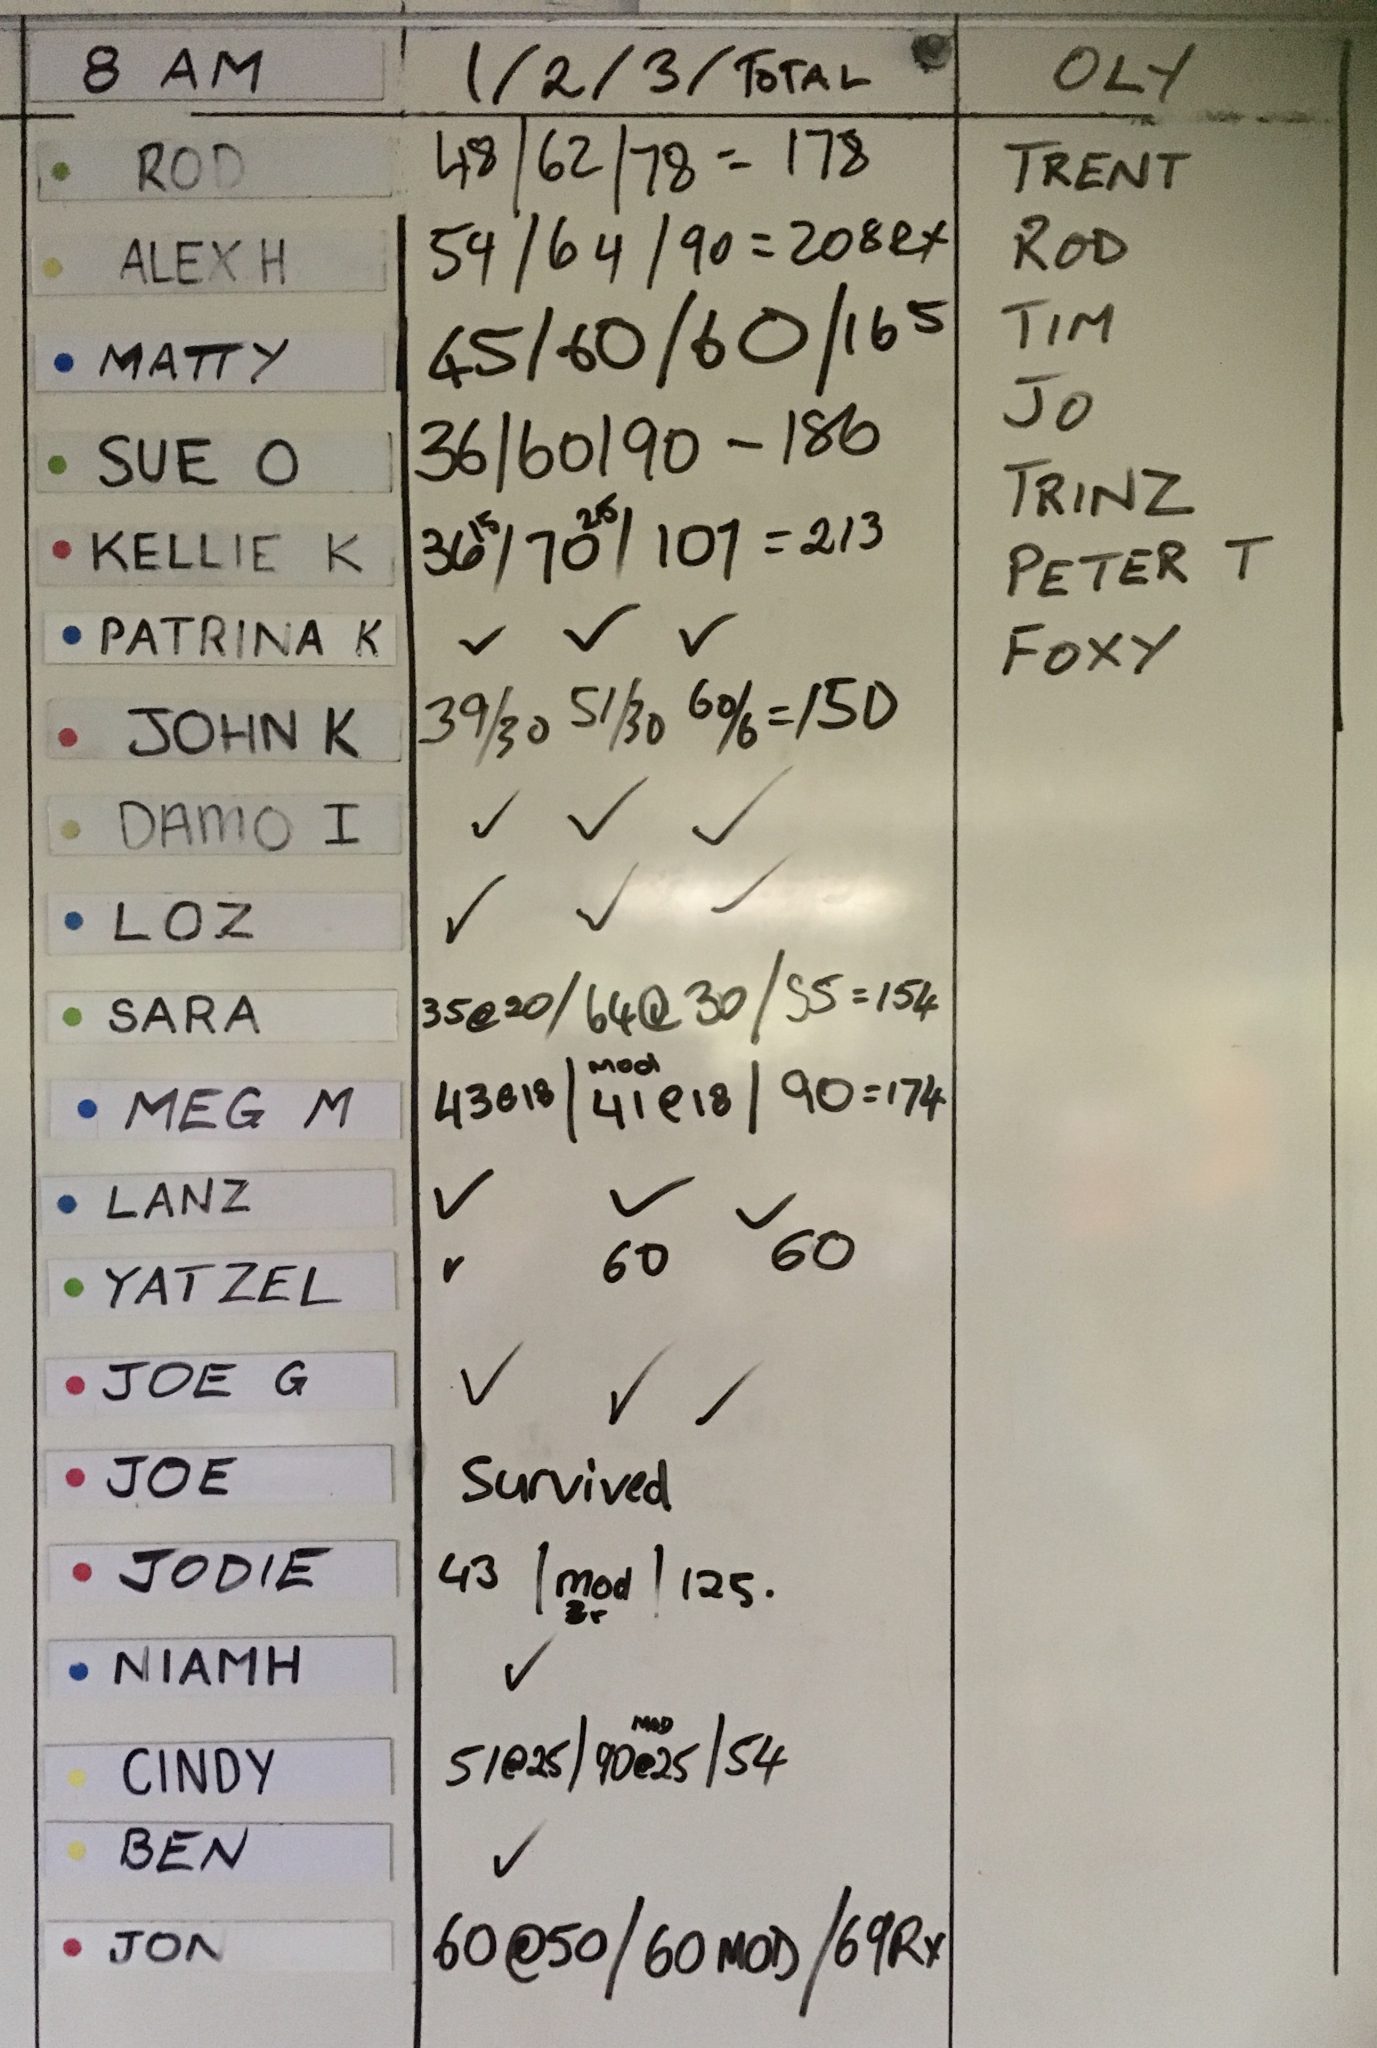 8 AM 1/2/3/TOTAL OLY
ROD 48/62/78 = 178 TRENT
ALEX H 54/64/90=208RX ROD
MATTY 45/60/60/165 TIM
SUE O 36/60/90 - 186 JO
KELLIE K 36 15/70 25/107 =213 TRINZ
PATRINA K ✓ ✓ ✓ PETER T
JOHN K 39/30 51/30 60/6=150 FOXY
DAMO I ✓ ✓ ✓
LOZ ✓ ✓ ✓
SARA 35@20/64@30/55=154
MEG M 43@18/mod 41@18/90=174
LANZ ✓ ✓ ✓
YATZEL ✓ 60 60
JOE G ✓ ✓ ✓
JOE Survived
JODIE 43 /mod/125.
NIAMH ✓
CINDY 51@25/90@25 MOD/54
BEN ✓
JON 60@50/60 MOD/69Rx